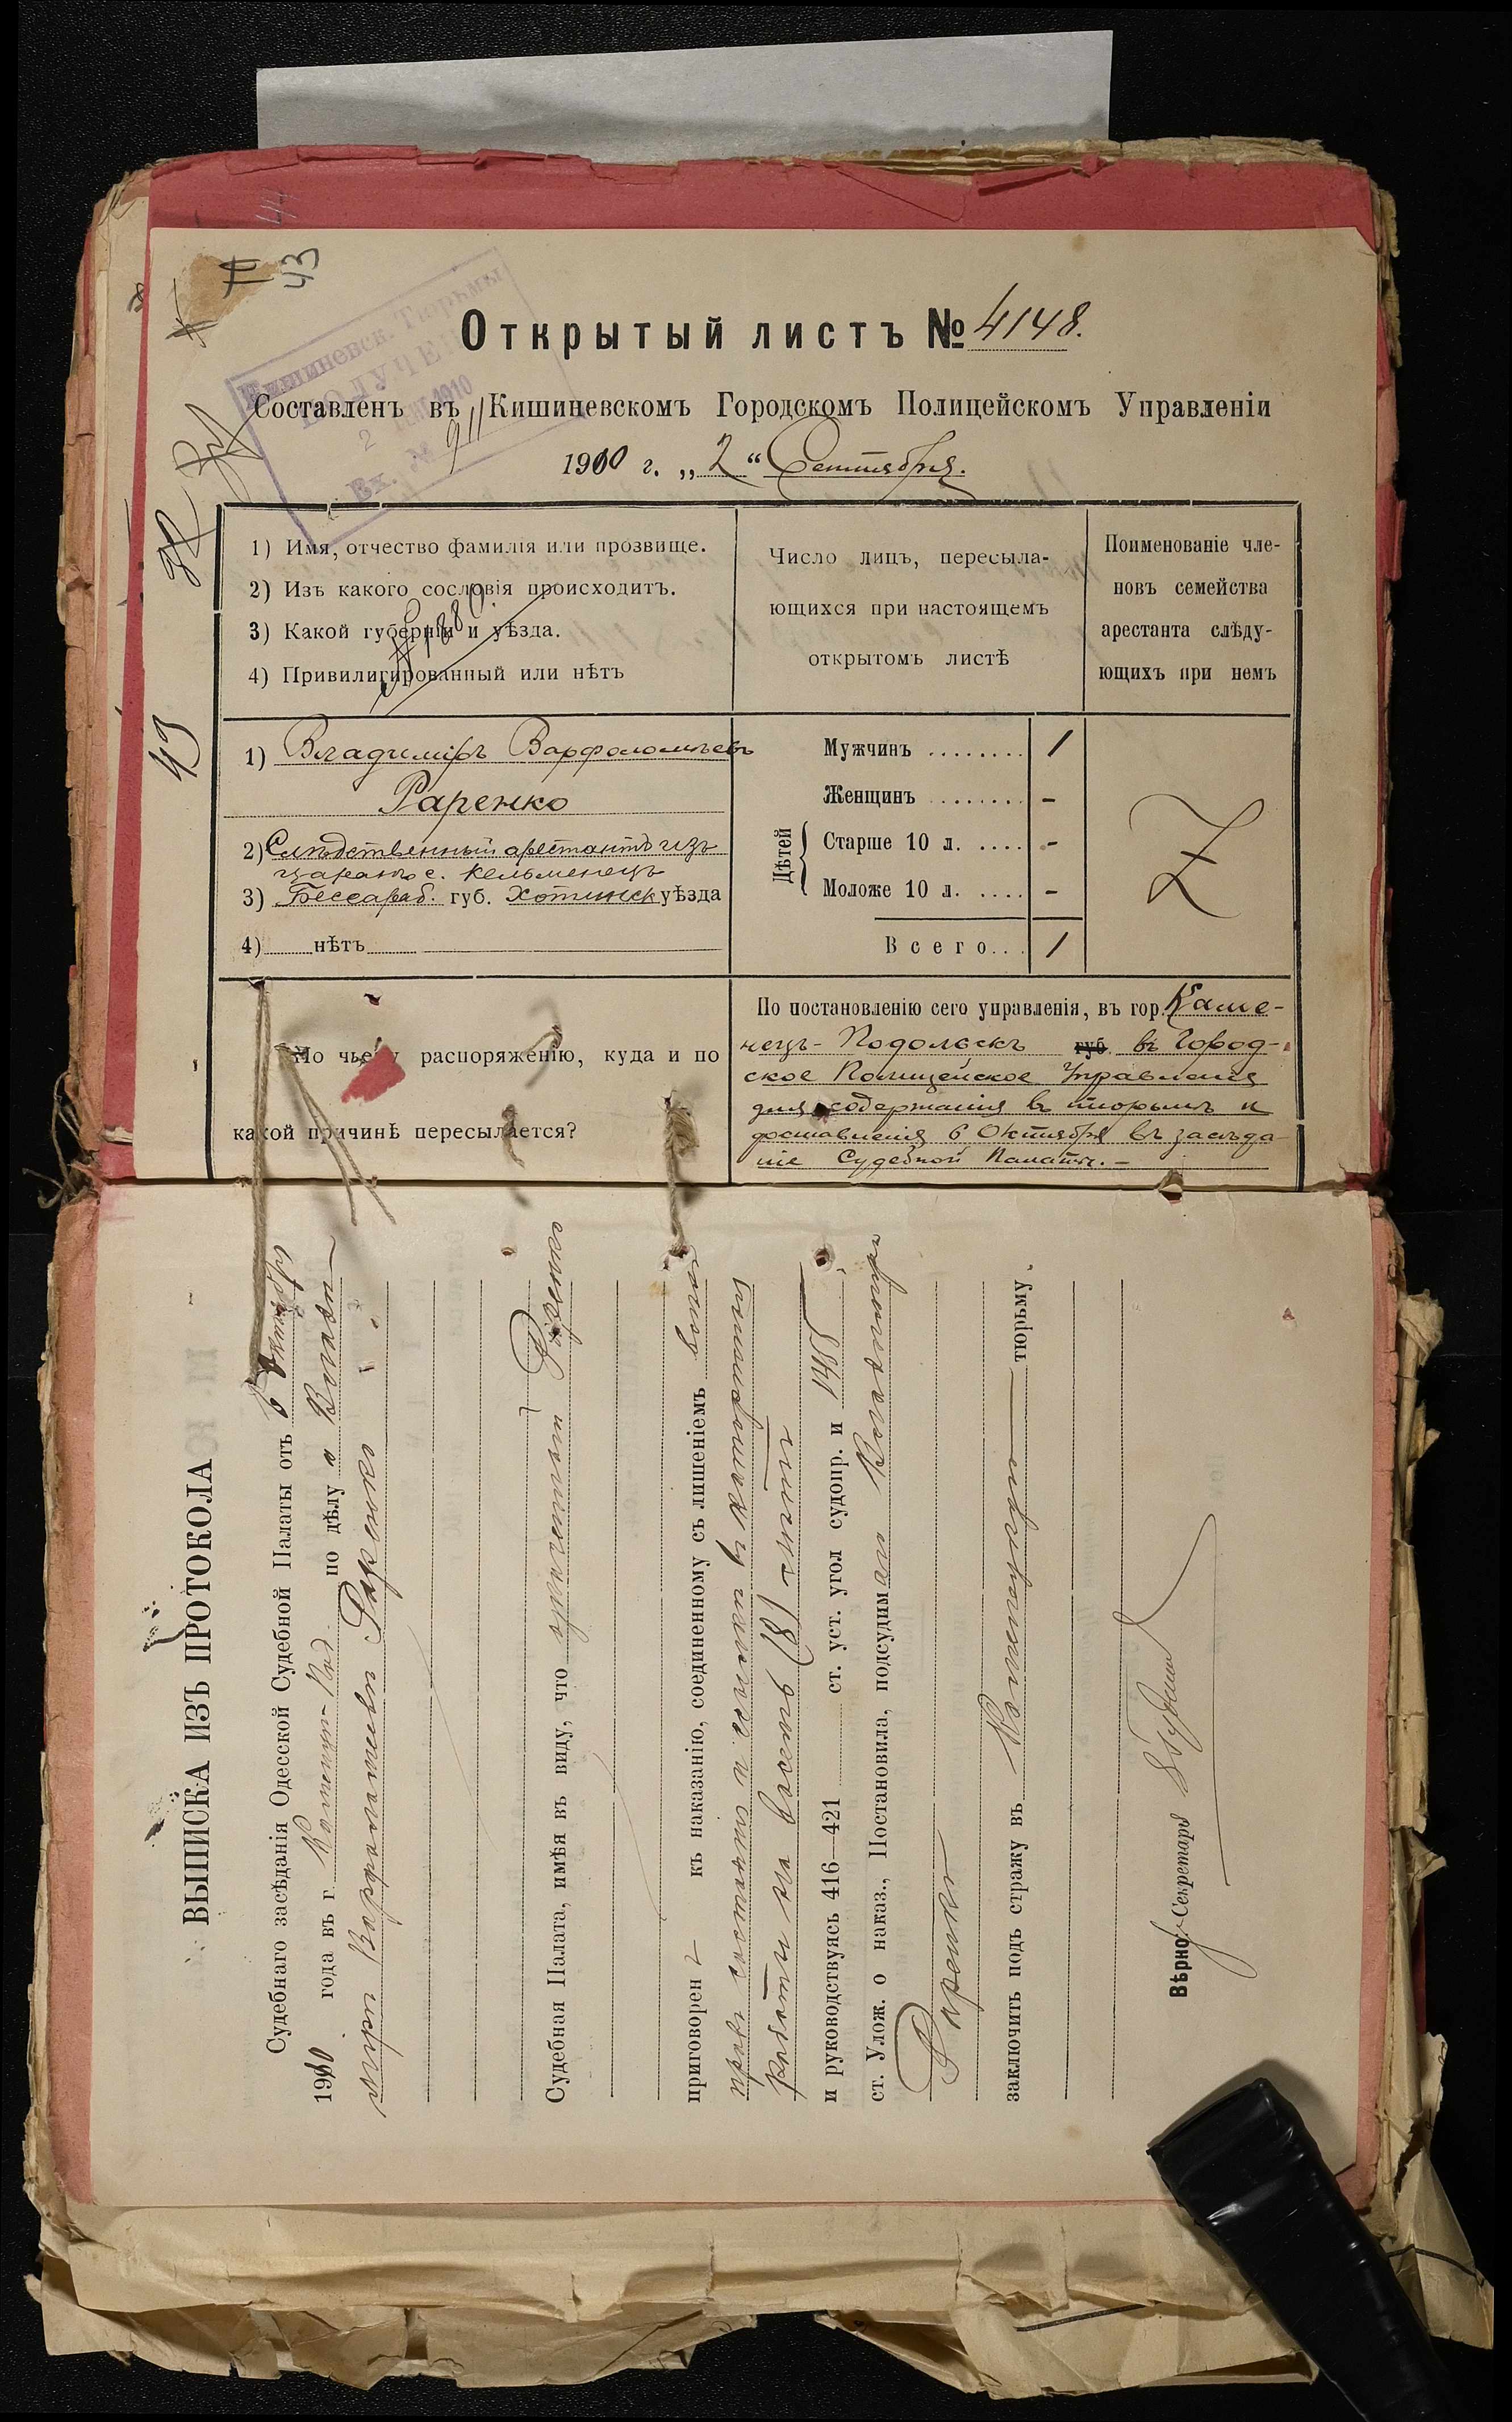 43
Кишиневск. Тюрьмы
ПОЛУЧЕН
2 СЕНТ. 1910
Вх. № 911
Открытый листъ № 4148.
Составленъ въ Кишиневскомъ Городскомъ Полицейскомъ Управленіи
1910 г. „2“ Сентября.
1) Имя, отчество фамилія или прозвище.
2) Изъ какого сословія происходитъ.
3) Какой губерніи и уѣзда.
4) Привилигированный или нѣтъ
Число лицъ, пересыла-
ющихся при настоящемъ
открытомъ листѣ
Поименованіе чле-
новъ семейства
арестанта слѣду-
ющихъ при немъ
43
1) Владиміръ Варфоломѣевъ
Раренко
2) Слѣдственный арестантъ изъ
царанъ с. Кельменецъ
3) Бессараб. губ. Хотинск уѣзда
4) нѣтъ
Мужчинъ ........ 1
Женщинъ ........ -
Дѣтей
Старше 10 л. .... -
Моложе 10 л. .... -
Всего... 1
По чьему распоряженію, куда и по
какой причинѣ пересылается?
По постановленію сего управленія, въ гор. Каме-
нецъ-Подольскъ губ. въ Город-
ское Полицейское Управленіе
для содержанія въ тюрьмѣ и
доставленія 6 Октября въ засѣда-
ніе Судебной Палаты. -
ВЫПИСКА ИЗЪ ПРОТОКОЛА
Судебнаго засѣданія Одесской Судебной Палаты отъ 6 Октября
1910 года въ г. Каменецъ-Под. по дѣлу о Влади-
мирѣ Варфоломеевѣ Раренко
Судебная Палата, имѣя въ виду, что Раренко
приговорен къ наказанію, соединенному съ лишеніемъ всѣхъ
правъ состоянія и ссылкѣ въ каторжныя
работы на восемь (8) лѣтъ
и руководствуясь 416—421 ст. уст. угол судопр. и
ст. Улож. о наказ., Постановила, подсудимаго Владимира
Раренко
заключить подъ стражу въ тюрьму.
Вѣрно: Секретарь